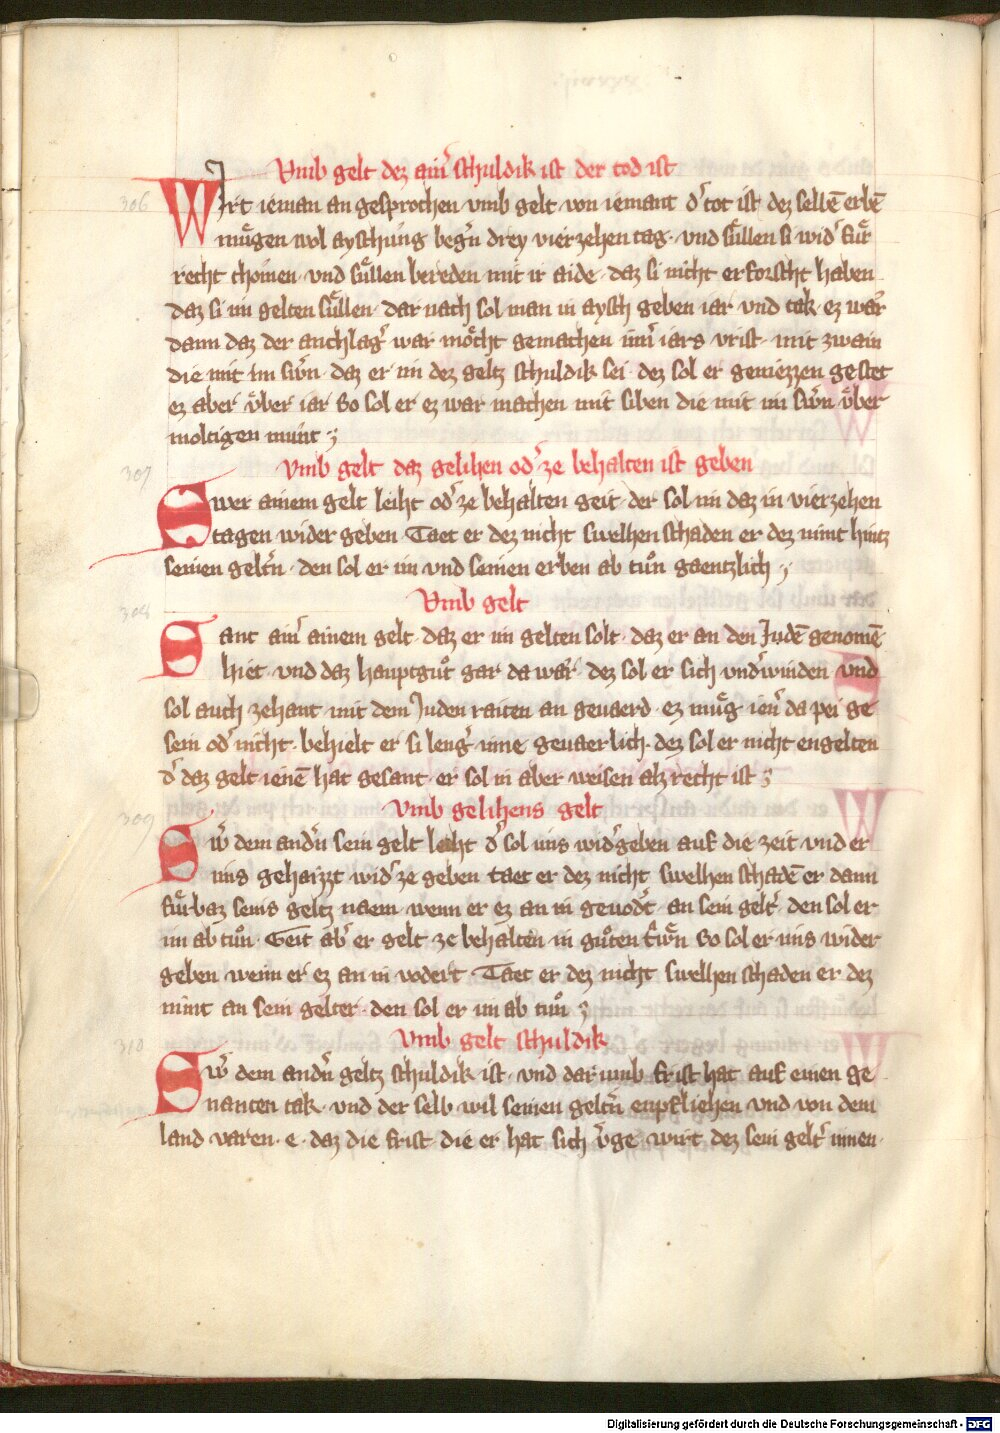 Vmb gelt dez ainr̄ schuldik ist der tod ist
306
WJrt ieman an gesprochen vmb gelt von iemant d̉ tot ist dez selbē erbē
muͤgen wol ayschung beg̉n drey vierzehen tag · vnd suͤllen si wid̉ fuͤr
recht chomen · vnd suͤllen bereden mit ir aide · daz si nicht erforscht haben
daz si im gelten suͤllen · dar nach sol man in aysch geben iar vnd tak · ez war̉
dann daz der anchlag̉ war moͤcht gemachen inr̄ iars vrist · mit zwain
die mit im sw̉n · daz er im dez geltz schuldik sei · dez sol er geniezzen gestet
ez aber vͤber iar So sol er ez war machen mit siben die mit im sw̉n vͤber
moltigen munt ·
307
vmb gelt daz gelihen od̉ ze behalten ist geben
Swer ainem gelt leiht od̉ ze behalten geit · der sol im daz in vierzehen
tagen wider geben Taet er dez nicht swelhen schaden er dez nimt hintz
seinen gelt̉n · den sol er im vnd seinen erben ab tuͦn gaentzlich ·
308
Vmb gelt
Sant ainr̄ ainem gelt · daz er im gelten solt · daz er an den Judē genomē
hiet · vnd daz hauptguͦt gar da war̉ · dez sol er sich vnd̉winden vnd
sol auch zehant mit dem Juden raiten an geuaerd · ez muͤg ien̉ da pei ge
sein od̉ nicht · behielt er si leng̉ inne geuaerlich · dez sol er nicht engelten
d̉ daz gelt ienē hat gesant · er sol in aber weisen alz recht ist
309
vmb gelihens gelt
Sw̉ dem and̉n sein gelt leiht d̉ sol ims wid̉geben auf die zeit vnd er
ims gehaizzt wid̉ ze geben taet er dez nicht swelhen schadē er dann
fuͤrbaz seins geltz naem · wenn er ez an in geuod̉t · an sein gelt̉ · den sol er
im ab tuͦn · Geit ab̉ er gelt ze behalten in guͦten trwͤn So sol er ims wider
geben wenn er ez an in vodert · Taet er dez nicht swelhen schaden er dez
nimt an sein gelter · den sol er im ab tuͦn
310
Vmb gelt schuldik
Sw̉ dem and̉n geltz schuldik ist · vnd dar vmb frist hat auf einen ge
nanten tak · vnd der selb wil seinen gelt̉n enpfliehen vnd von dem
land varen · e · daz die frist die er hat sich v̉ge wirt dez sein gelt̉ innen ·
Digitalisierung gefördert durch die Deutsche Forschungsgemeinschaft - DFG